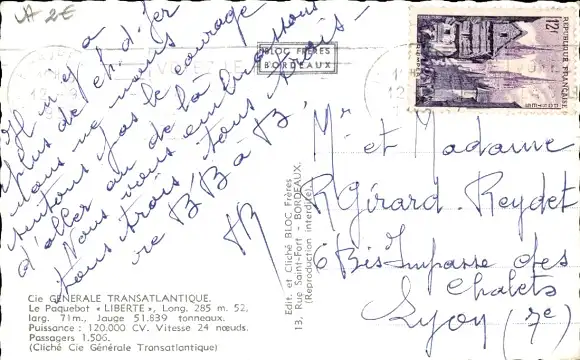 A 2€
Il n'y a
plus de ch. d. fer
nous ne nous
sentons pas le courage
d'aller au de là
Nous vous embrassons
tous trois
tous trois
re B B a B
BLOC FRÈRES
BORDEAUX
RÉPUBLIQUE FRANÇAISE
12F
POSTES
QUIMPER
Mr et Madame
R Girard-Reydet
6 Bis Impasse des
Chalets
Lyon (7e)
Edit. et Cliché BLOC Frères
13, Rue Saint-Fort - BORDEAUX.
(Reproduction interdite)
Cie GÉNÉRALE TRANSATLANTIQUE.
Le Paquebot « LIBERTÉ », Long. 285 m. 52,
larg. 71m., Jauge 51.839 tonneaux.
Puissance : 120.000 CV. Vitesse 24 nœuds.
Passagers 1.506.
(Cliché Cie Générale Transatlantique)